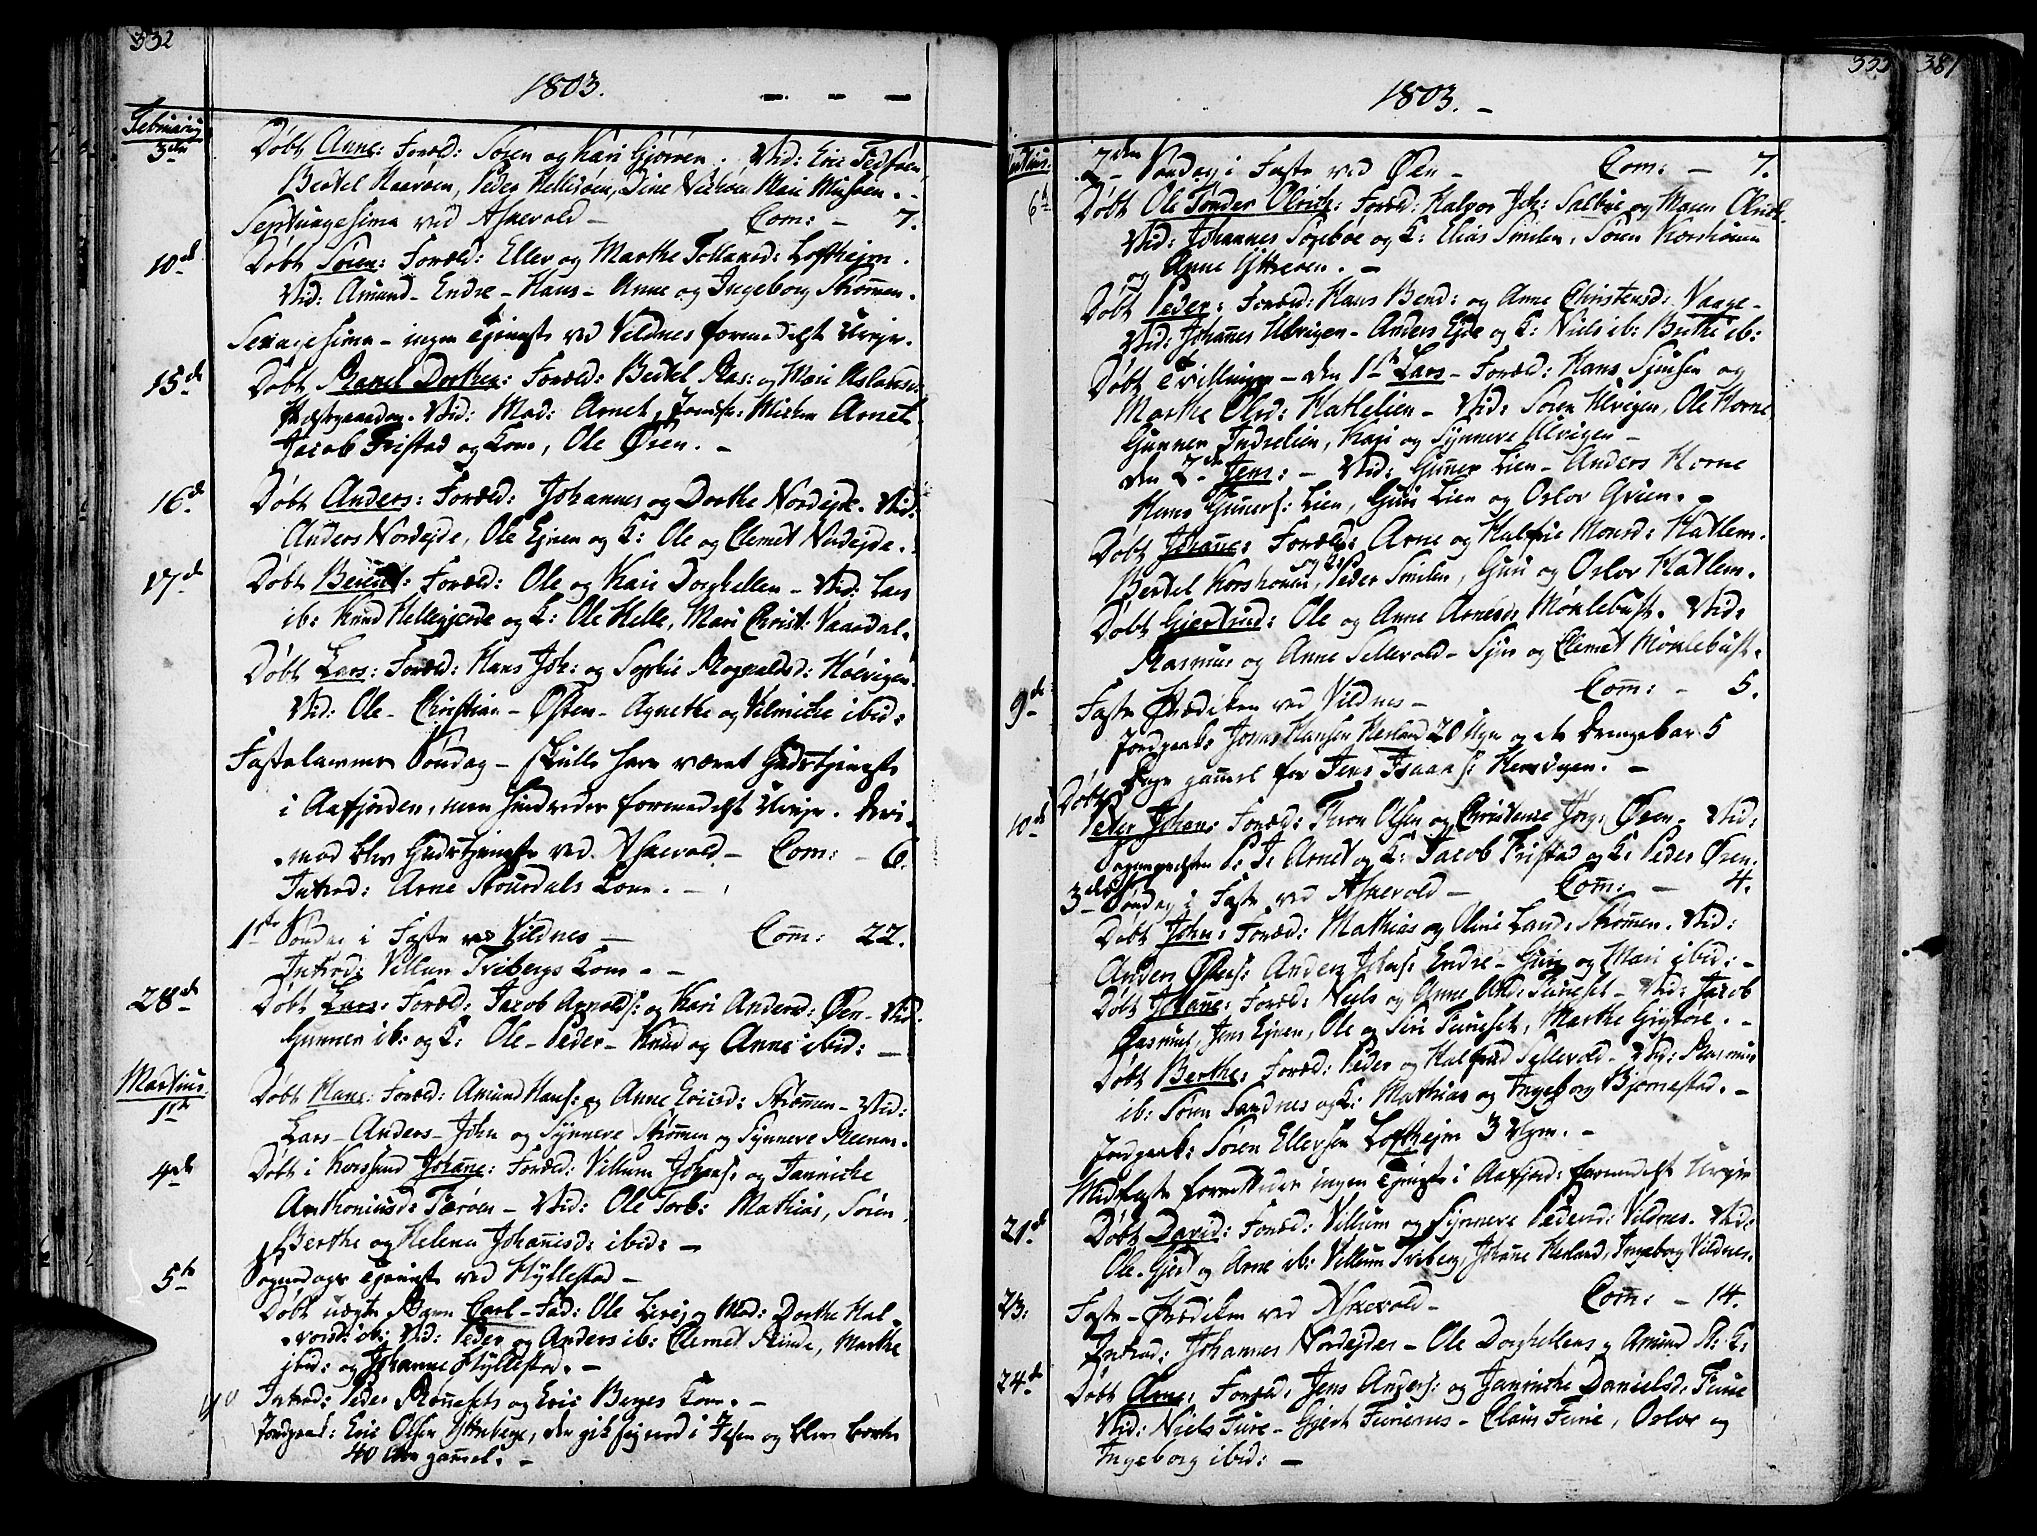 332
1803.
Februarij
3die Døbt Anne: Foræld: Søren og Kari Gjørøen. Vid: Eric
Bertel Naarøen, Peder Hellisøen, Sine Mari
Septuagesima ved Askevold – Com: – 7.
10de Døbt Søren: Foræld: Eller og Marthe Tollævsd: Lofthejm.
Vid: Amund – Endre – Hans – Anne og Ingeborg Strømen.
Sexagesima – ingen Tjeneste ved Vildnes formedelst Uvejr.
15de Døbt Maren Dorthea: Foræld: Bertel Ras: og Mari Aslaksd:
Præstegaarden. Vid: Mad: Arnet, Jomfr: Arnet
Jacob Tristad og Kone, Ole Øren. –
16de Døbt Anders: Foræld: Johannes og Dorthe Nordejde. Vid:
Anders Nordejde, Ole Ejnen og K: Ole og Clemet Nordejde.
17de Døbt Berent: Foræld: Ole og Kari Dorghellen – Vid: Lars
ib: Knud Hellegjerde og K: Ole Helle, Mari Christ: Vaardal.
Døbt Lars: Foræld: Hans Joh: og Sophie Rognaldsd: Høevigen.
Vid: Ole – Christian – Østen – Agnethe og Vilmiche ibid:
Fastelavens Søndag – skulle have været Gudstjeneste
i Aafjorden, men hindredes formedelst Uvejr. Deri-
mod blev Gudstjeneste ved Askevold – Com: – 6.
Introd: Arne Stousdals Kone. –
1ste Søndag i Faste ved Vildnes – Com: 22.
Introd: Villum Tvibergs Kone. –
28de Døbt Lars: Foræld: Jacob Arnoldsf: og Kari Andersd: Øen – Vid:
Gunner ib: og K: Ole – Peder – Knud og Anne ibid: –
Martius.
1ste Døbt Hans: Foræld: Amund Hansf: og Anne Ericsd: Strømen – Vid:
Lars – Anders – John og Synneve Strømen og Synneve
4de Døbt i Korssund Johane: Foræld: Villum Johansf: og Janniche
Anthoniusd: Tærøen – Vid: Ole Torb: Mathias, Søren,
Berthe og Helena Johanisd: ibid: –
5te Sognedags Tjeneste ved Hyllestad –
Døbt uægte Barn Carl – Fad: Ole og Mod: Dorthe Hal-
vorsd: ib: Vid: Peder og Anders ib: Clemet Marthe
ibid: og Johanne Hyllestad. –
Introd: Peder Rønesets og Eric Berges Kone. –
Jordpaak: Eric Olsen Ytreberge, den gik sig ned i Isen og blev borte
40 Aar gamel. –
333 381
1803. –
Martius.
2den Søndag i Faste ved Øen – Com: – 7.
6te Døbt Ole Tønder Olrich: Foræld: Halvor Joh: Salbue og Maren
Vid: Johannes Sørebøe og K: Elias Smilen, Søren Korshavn
og Anne Yttreøen. –
Døbt Peder: Foræld: Hans Bend: og Anne Christensd: Vaage –
Vid: Johannes Ulvigen – Anders Ejde og K: Niels ib: Berthe ib:
Døbt Tvillinger – den 1ste Lars – Foræld: Hans og
Marthe Olsd: Hatlelien – Vid: Søren Ulvigen, Ole Horne
Gunner Indrelien, Kari og Synneve Ulvigen –
den 2de Jens: – Vid: Guner Lien – Anders Horne
Hans Gunersf: Lien, Guri Lien og Oslov Gruen. –
Døbt Johane: Foræld: Arne og Halfrie Monsd: Hatlem.
Bertel Korshavn, Peder Smilen, Guri og Oslov Hatlem.
Døbt Gjertrud: Ole og Anne Arnesd: Møklebust. Vid:
Rasmus og Anne Sellevold – og Clemet Møklebust.
9de Faste Prædiken ved Vildnes – Com: – 5.
Jordpaak: Jonas Hansen Hesland 20 Ugr og et Drengebarn 5
Dage gamel for Jens Isaacsf: Hervigen. –
10de Døbt Peder Johan: Foræld: Thron Olsen og Christense Jorg: Øren – Vid:
Sognepræsten P: J: Arnet og K: Jacob Tristad og K: Peder Øren.
3die Søndag i Faste ved Askevold – Com: – 4.
Døbt John: Foræld: Mathias og Strømen. Vid:
Anders Østensf: Anders Johansf: Endre – Guri og Mari ibid: –
Døbt Johane: Foræld: Niels og Anne And: Furseset – Vid: Jacob
Jens Ejnen, Ole og Siri Furseset, Marthe
Døbt Berthe: Foræld: Peder og Halfrid Sellevold – Vid: Rasmus
ib: Søren Sandnes og K: Mathias og Ingeborg Bjørnestad. –
Jordpaak: Søren Ellersen Lofthejm 3 Ugr. –
Midfaste forrettedes ingen Tjeneste i Aafjord: formedelst Uvejr
21de Døbt David: Foræld: Villum og Synneve Pedersd: Vildnes. Vid:
Ole. Gjert og Arne ib: Villum Tviberg, Johane Hesland, Ingeborg Vildnes.
23: Faste – Prædiken ved Askevold – Com: – 14.
Introd: Johannes Nordejdes – Ole Dorghellens og Amund St: K:
24de Døbt Arne: Foræld: Jens Andersf: og Janniche Danielsd: Furie
Vid: Niels Furie – Gjert Furenes – Claus Furie, Oslov og
Ingeborg ibid: –